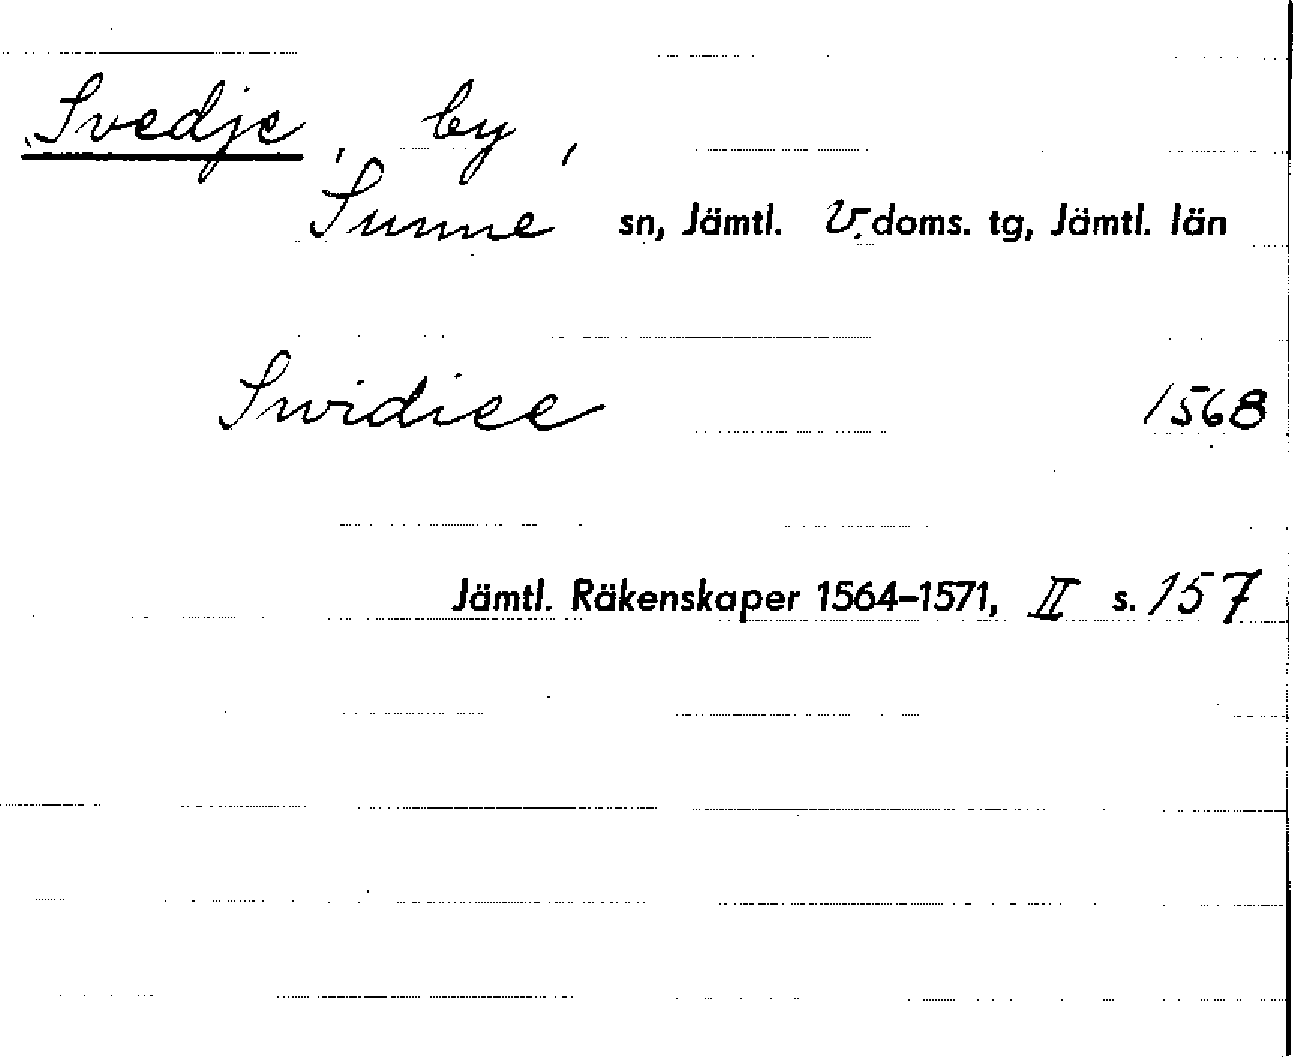 Svedje, by,
Sunne sn, Jämtl. V. doms. tg, Jämtl. län
Swidiee 1568
Jämtl. Räkenskaper 1564–1571, II s. 157